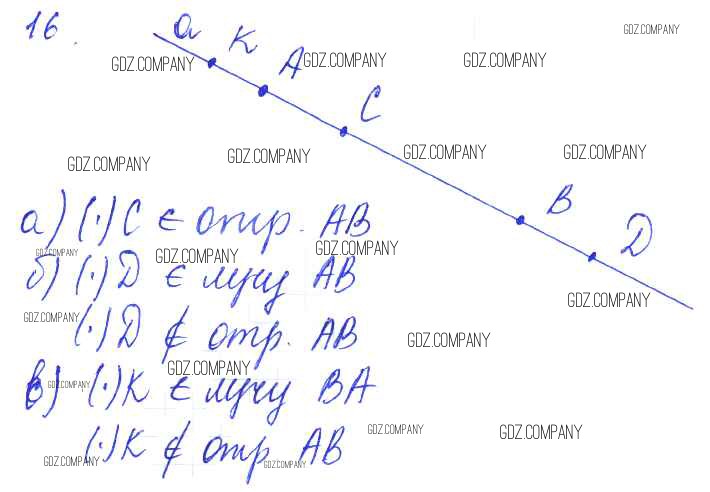 16.
a K A C B D
GDZ.COMPANY
GDZ.COMPANY GDZ.COMPANY GDZ.COMPANY
GDZ.COMPANY GDZ.COMPANY GDZ.COMPANY GDZ.COMPANY
а) (·) C ∈ отр. AB
GDZ.COMPANY GDZ.COMPANY GDZ.COMPANY
б) (·) D ∈ лучу AB
GDZ.COMPANY
GDZ.COMPANY
(·) D ∉ отр. AB
GDZ.COMPANY
GDZ.COMPANY
в) (·) K ∈ лучу BA
GDZ.COMPANY
GDZ.COMPANY GDZ.COMPANY
(·) K ∉ отр AB
GDZ.COMPANY GDZ.COMPANY